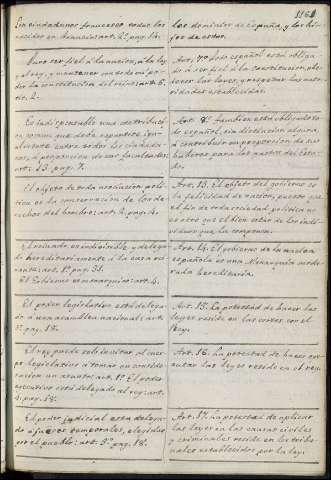 1164
Son ciudadanos franceses todos los
nacidos en Francia: art. 2. pag. 14.
los dominios de España, y los hi-
jos de estos.
Juro ser fiel á la nacion, á la ley
y al rey, y mantener con todo mi po-
der la constitucion del reino: art. 5.
tit. 2.
Art. 7º todo español está obliga-
do á ser fiel á la constitucion, obe-
decer las leyes, y respetar las auto-
ridades establecidas.
Es indispensable una contribucion
comun que debe repartirse igu-
almente entre todos los ciudada-
nos, á proporcion de sus facultades:
art. 13. pag. 7.
Art. 8º tambien está obligado to-
do español, sin distincion alguna,
á contribuir en proporcion de sus
haberes para los gastos del Esta-
do.
El objeto de toda asociacion poli-
tica es la conservacion de los de-
rechos del hombre: art. 2. pag. 4.
Art. 13. El objeto del gobierno es
la felicidad de la nacion, puesto que
el fin de toda sociedad politica no
es otro que el bien estar de los indi-
viduos que la componen.
El reinado es indivisible, y delega-
do hereditariamente á la casa rei-
nante: art. 1º pag. 31.
El Gobierno es monarquico: art. 4.
Art. 14. El gobierno de la nacion
española es una Monarquia mode-
rada hereditaria.
El poder legislativo está delega-
do á una asamblea nacional: art.
3º pag. 18.
Art. 15. La potestad de hacer las
leyes reside en las cortes con el
Rey.
El rey puede solo invitar al cuer-
po legislativo á tomar en conside-
racion un asunto: art. 1º El poder
executivo está delegado al rey: art.
4. pag. 18.
Art. 16. La potestad de hacer exe-
cutar las leyes reside en el rey.
El poder judicial está delega-
do á jueces temporales, elegidos
por el pueblo: art. 5º pag. 18.
Art. 17. La potestad de aplicar
las leyes en las causas civiles
y criminales reside en los tribu-
nales establecidos por la ley.